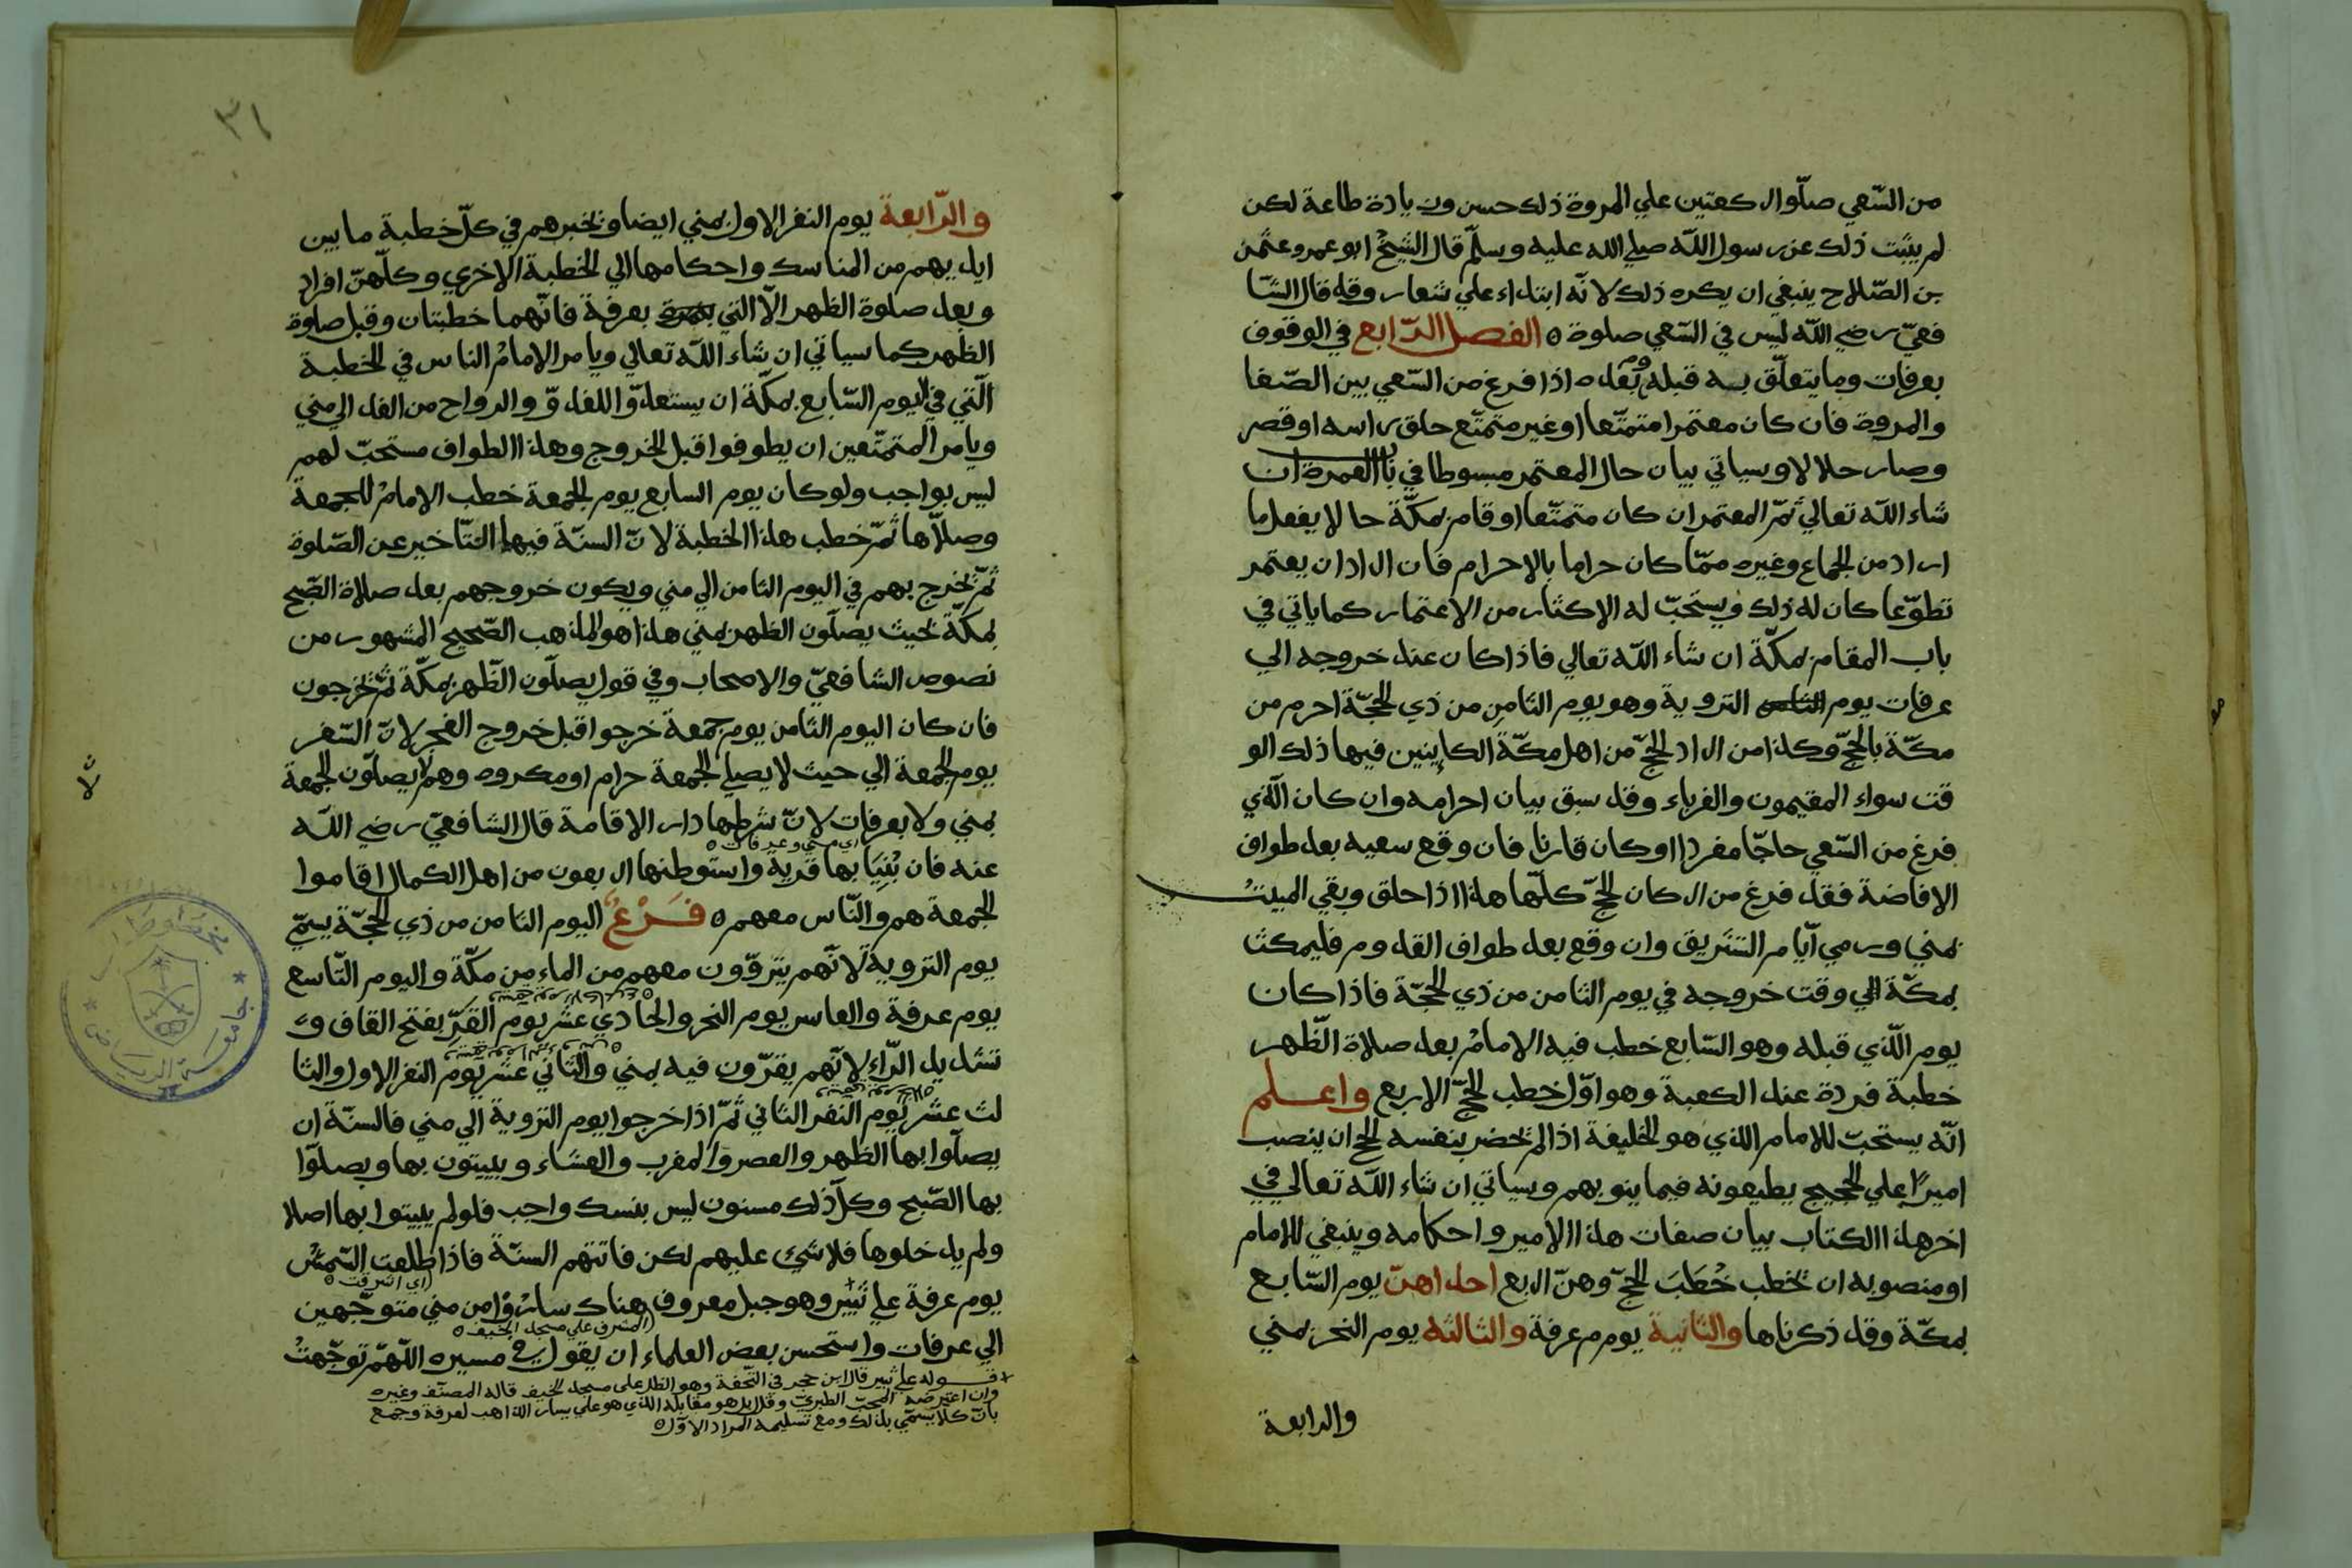 من السّعي صلّوا الركعتين علي المروة ذلك حسن وزيادة طاعة لكن
لم يثبت ذلك عن رسول اللّه صلي الله عليه وسلّم قال الشّيخُ ابو عمرو عثمن
بن الصّلاح ينبغي ان يكره ذلك لانّه ابتداء علي شعار وقد قال الشّا
فعيّ رضي اللّه ليس في السّعي صلوة ه الفصل الرّابع في الوقوف
بعرفات وما يتعلّق به قبله وبعده اذا فرغ من السّعي بين الصّفا
والمروة فان كان معتمرا متمتّعا او غير متمتّع حلق راسه او قصر
وصار حلالا وسياتي بيان حال المعتمر مبسوطا في باب العمرة ان
شاء اللّه تعالي ثمّ المعتمر ان كان متمتّعا اوقام بمكّة حالا يفعل ما
اراد من الجماع وغيره ممّا كان حراما بالاحرام فان اراد ان يعتمر
تطوّعا كان له ذلك ويستحبّ له الاكثار من الاعتمار كما ياتي في
باب المقام بمكّة ان شاء اللّه تعالي فاذا كان عند خروجه الي
عرفات يوم التروية وهو يوم الثامن من ذي الحجّة احرم من
مكّة بالحجّ وكذا من اراد الحجّ من اهل مكّة الكاينين فيها ذلك الو
قت سواء المقيمون والغرباء وقد سبق بيان احرامه وان كان الّذي
فرغ من السّعي حاجّا مفردا او كان قارنا فان وقع سعيه بعد طواف
الافاضة فقد فرغ من اركان الحجّ كلّها هذا اذا حلق وبقي المبيتُ
بمني ورمي ايّام التشريق وان وقع بعد طواف القدوم فليمكث
بمكّة الي وقت خروجه في يوم الثامن من ذي الحجّة فاذا كان
يوم الّذي قبله وهو السّابع خطب فيه الامامُ بعد صلاة الظّهر
خطبة فردة عند الكعبة وهو اوّل خطب الحجّ الاربع واعلم
انّه يستحبّ للامام الذي هو الخليفة اذا لم يحضر بنفسه الحج ان ينصب
اميرًا علي الحجيج يطيعونه فيما ينوبهم وسياتي ان شاء اللّه تعالي في
اخر هذا الكتاب بيان صفات هذا الامير واحكامه وينبغي للامام
او منصوبه ان يخطب خُطَبَ الحجّ وهنّ اربع احداهنّ يوم السّابع
بمكّة وقد ذكرناها والثانية يوم م عرفة والثالثه يوم النحر بمني
والرابعة
٣١
والرّابعة يوم النفر الاول بمني ايضا ويخبرهم في كلّ خطبة ما بين
ايديهم من المناسك واحكامها الي الخطبة الاخري وكلّهنّ افراد
وبعد صلوة الظهر الّا التي بعرفة فانّهما خطبتان وقبل صلوة
الظّهر كما سياتي ان شاء اللّه تعالي ويامر الامامُ الناس في الخطبة
الّتي في اليوم السّابع بمكّة ان يستعدّوا للغدوّ والرواح من الغد الي مني
ويامر المتمتّعين ان يطوفوا قبل الخروج وهذا الطواف مستحبّ لهم
ليس بواجب ولو كان يوم السابع يوم الجمعة خطب الامامُ للجمعة
وصلّاها ثمّ خطب هذا الخطبة لانّ السنّة فيها التّاخير عن الصّلوة
ثمّ يخرج بهم في اليوم الثامن الي مني ويكون خروجهم بعد صلاة الصّبح
بمكّة بحيث يصلّون الظهر بمني هذا هو المذهب الصّحيح المشهور من
نصوص الشافعيّ والاصحاب وفي قول يصلّون الظّهر بمكّة ثمّ يخرجون
فان كان اليوم الثّامن يوم جمعة خرجوا قبل خروج الفجر لانّ السّفر
يوم الجمعة الي حيث لا يصلي الجمعة حرام او مكروه وهم لا يصلّون الجمعة
بمني ولا بعرفات لانّ شرطها دار الاقامة قال الشافعيّ رضي اللّه
اي مني وعرفات ه
عنه فان بُنِيَا بها قرية واستوطنها اربعون من اهل الكمال اقاموا
الجمعة هم والنّاس معهم ه فَرْعٌ اليوم الثامن من ذي الحجّة يسمّي
يوم التروية لانّهم يتروّون معهم من الماء من مكّة واليوم التّاسع
يوم عرفة والعاشر يوم النحر والحادي عشر يوم القَرِّ بفتح القاف و
تشديد الرّاء لانّهم يقرّون فيه بمني والثّاني عشر يوم النفر الاول والثا
لث عشر يوم النفر الثاني ثمّ اذا خرجوا يوم التروية الي مني فالسنّة ان
يصلّوا بها الظهر والعصر والمغرب والعشاء ويبيتون بها ويصلّوا
بها الصّبح وكلّ ذلك مسنون ليس بنسك واجب فلو لم يبيتوا بها اصلا
ولم يدخلوها فلا شيء عليهم لكن فاتتهم السنّة فاذا طلعت الشّمسُ
اي اشرقت ه
يوم عرفة علي ثبير وهو جبل معروف هناك ساروا من مني متوجّهين
المشرف علي مسجد الخيف ه
الي عرفات واستحسن بعض العلماء ان يقول في مسيره اللّهمّ توجّهتُ
قوله علي ثبير قال ابن حجر في التّحفة وهو المطلّ على مسجد الخيف قاله المصنّف وغيره
وان اعترضه المحبّ الطبريّ وقال بل هو مقابله الذي هو علي يسار الذاهب لعرفة وجمع
بانّ كلا يسمّي بذلك ومع تسليمه المراد الاوّل ه
جامعة الرياض